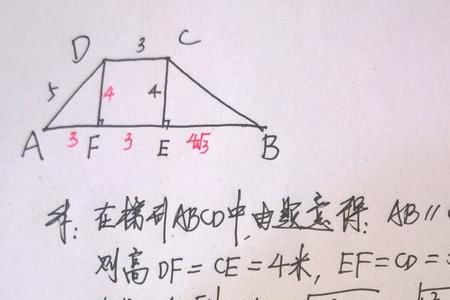 D 3 C
5 4 4
A 3 F 3 E 4√3 B
解: 在梯形ABCD中,由题意得: AB∥
则高DF=CE=4米, EF=CD=